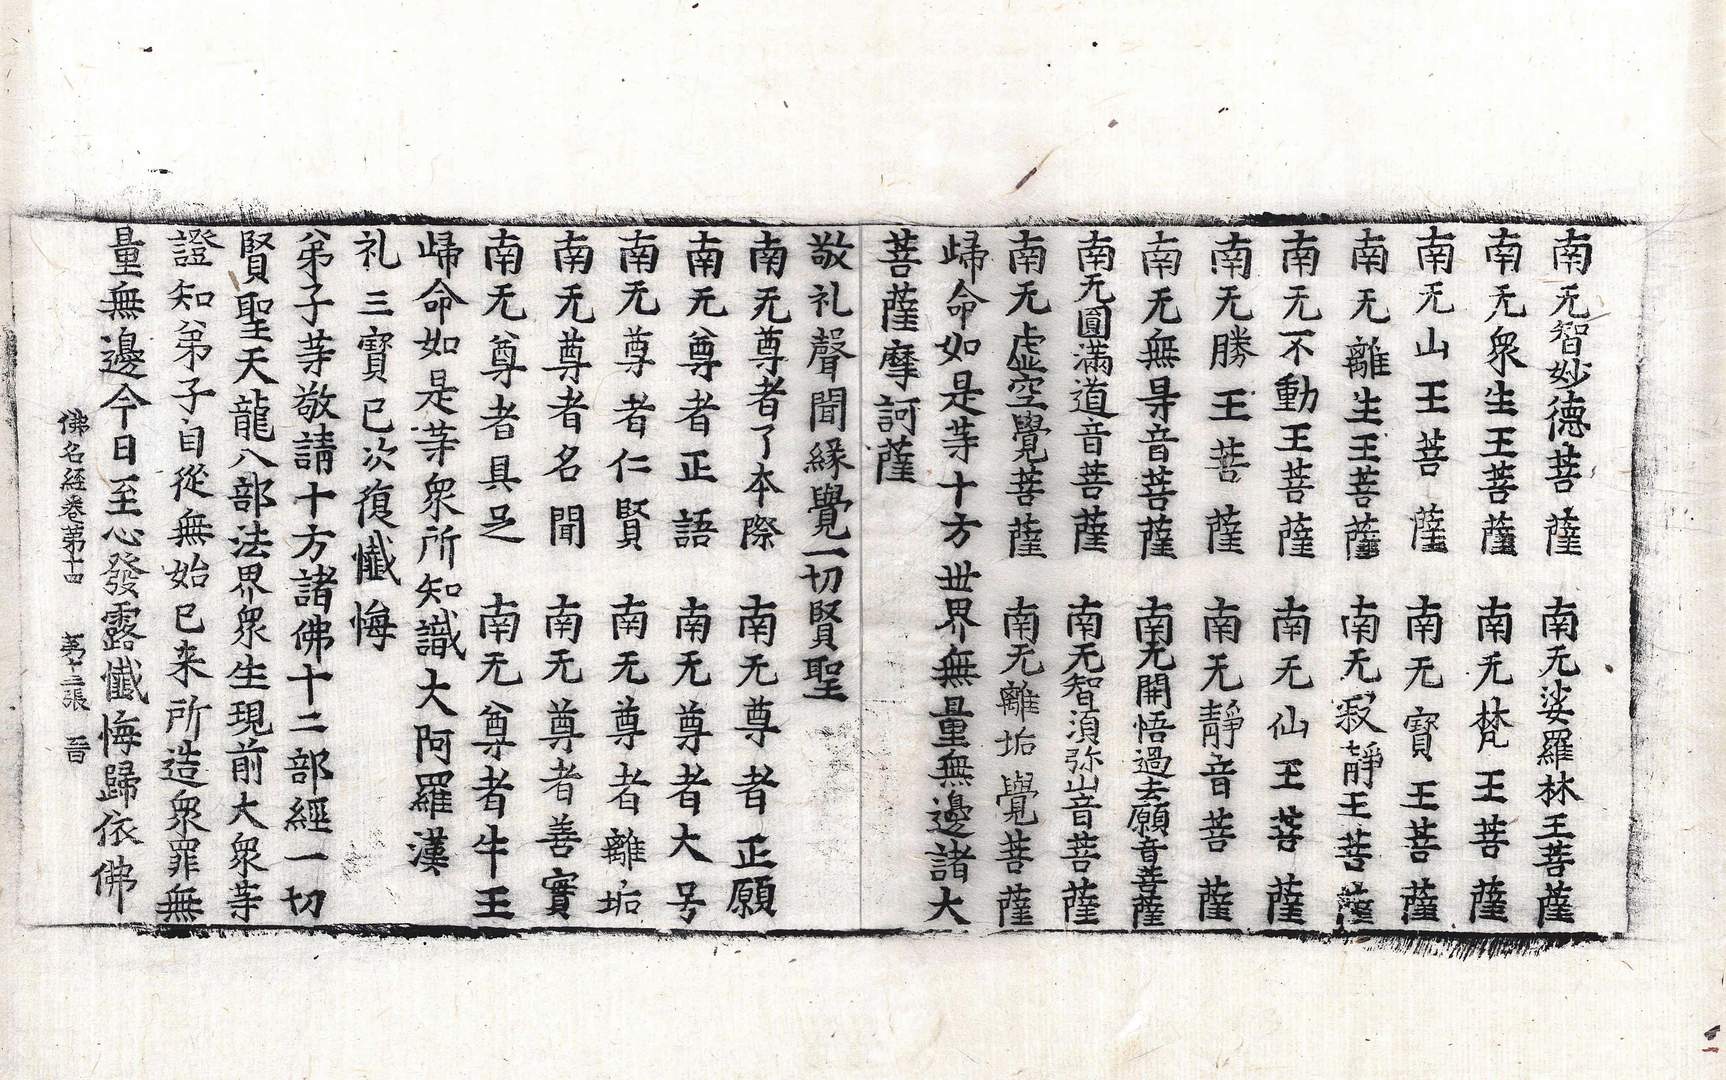 南无智妙德菩薩 南无娑羅林王菩薩
南无衆生王菩薩 南无梵王菩薩
南无山王菩薩 南无寶王菩薩
南无離生王菩薩 南无寂靜王菩薩
南无不動王菩薩 南无仙王菩薩
南无勝王菩薩 南无靜音菩薩
南无無㝵音菩薩 南无開悟過去願音菩薩
南无圓滿道音菩薩 南无智湏弥山音菩薩
南无虛空覺菩薩 南无離垢覺菩薩
歸命如是等十方世界無量無邊諸大
菩薩摩訶薩
敬礼聲聞緣覺一切賢聖
南无尊者了本際 南无尊者正願
南无尊者正語 南无尊者大号
南无尊者仁賢 南无尊者離垢
南无尊者名聞 南无尊者善實
南无尊者具足 南无尊者牛王
歸命如是等衆所知識大阿羅漢
礼三寶已次復懺悔
弟子等敬請十方諸佛十二部經一切
賢聖天龍八部法界衆生現前大衆等
證知弟子自從無始已来所造衆罪無
量無邊今日至心發露懺悔歸依佛
佛名經卷第十四 第十三張